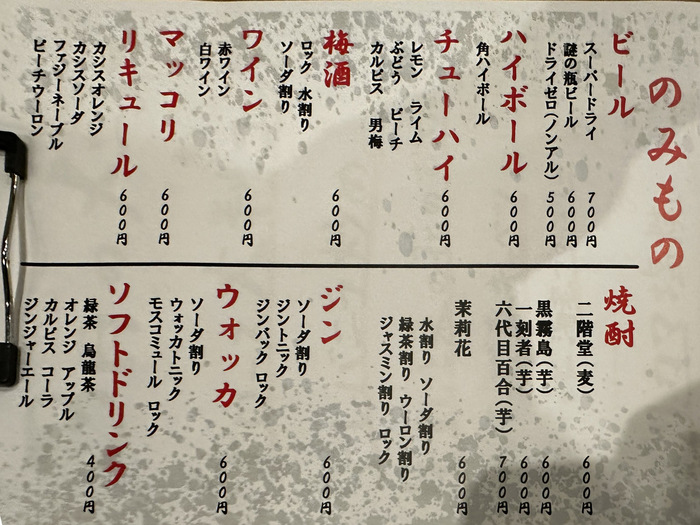 のみもの
ビール
スーパードライ 700円
謎の瓶ビール 600円
ドライゼロ(ノンアル) 500円
ハイボール 600円
角ハイボール
チューハイ 600円
レモン ライム
ぶどう ピーチ
カルピス 男梅
梅酒 600円
ロック 水割り
ソーダ割り
ワイン 600円
赤ワイン
白ワイン
マッコリ 600円
リキュール 600円
カシスオレンジ
カシスソーダ
ファジーネーブル
ピーチウーロン
焼酎
二階堂(麦) 600円
黒霧島(芋) 600円
一刻者(芋) 600円
六代目百合(芋) 700円
茉莉花 600円
水割り ソーダ割り
緑茶割り ウーロン割り
ジャスミン割り ロック
ジン 600円
ソーダ割り
ジントニック
ジンバック ロック
ウォッカ 600円
ソーダ割り
ウォッカトニック
モスコミュール ロック
ソフトドリンク 400円
緑茶 烏龍茶
オレンジ アップル
カルピス コーラ
ジンジャーエール